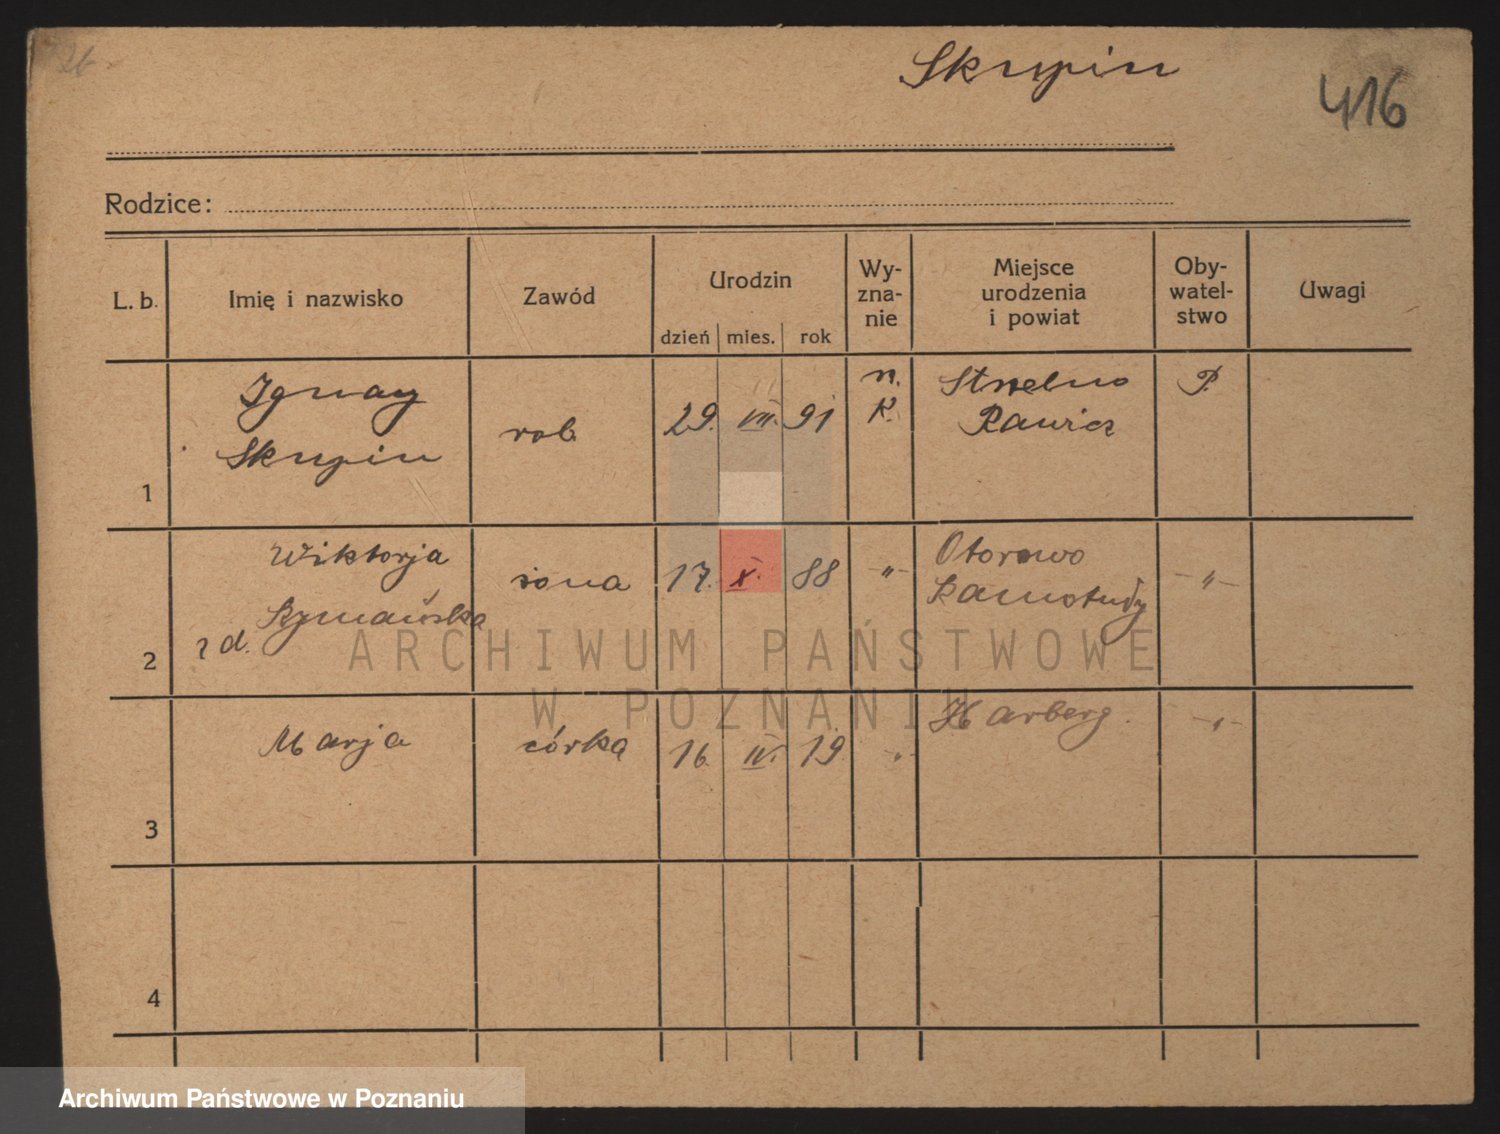 26
Skupin
416
Rodzice:
L. b.
Imię i nazwisko
Zawód
Urodzin
dzień mies. rok
Wy-
zna-
nie
Miejsce
urodzenia
i powiat
Oby-
watel-
stwo
Uwagi
1
Ignacy
Skupin
rob.
29. VII. 91
r.
K.
Strzelno
Rawicz
P.
2
Wiktorja
z d. Szymańska
żona
17. X. 88
-"-
Otorowo
Szamotuły
-"-
3
Marja
córka
16. IV. 19.
-"-
Harberg.
-"-
4
ARCHIWUM PAŃSTWOWE
W POZNANIU
Archiwum Państwowe w Poznaniu